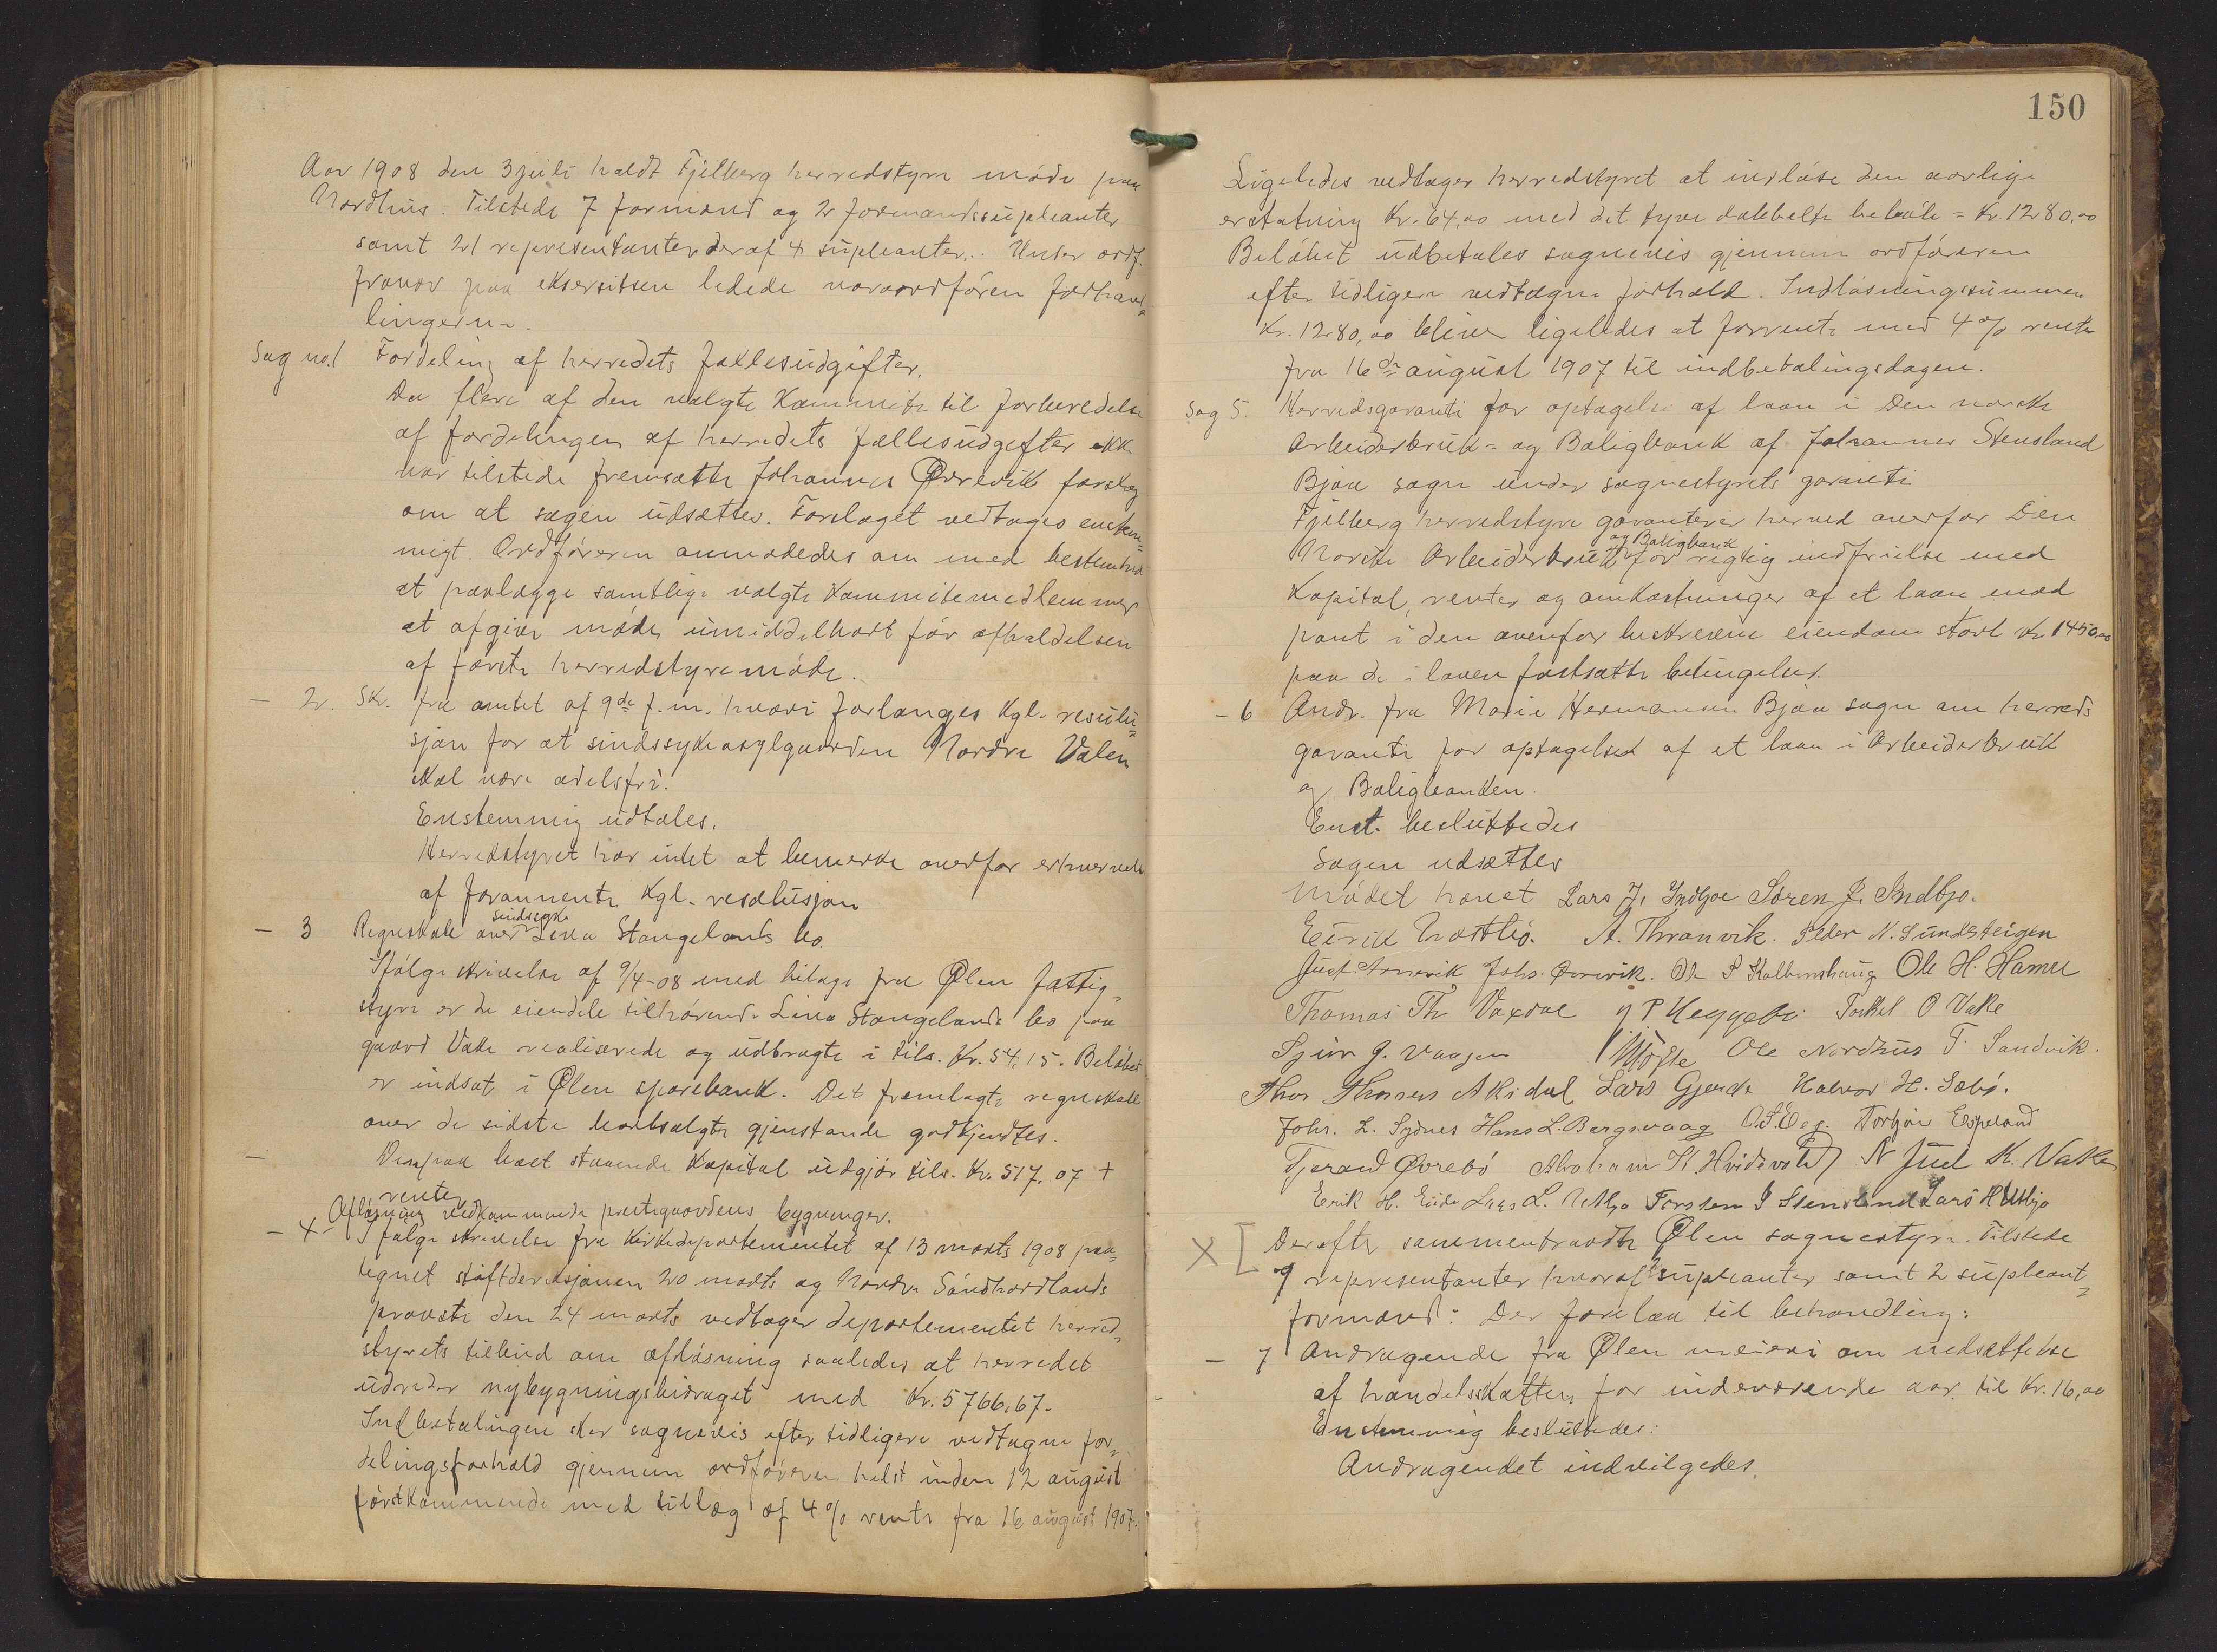 Aar 1908 den 3 juli holdt Fjelberg herredstyre møde paa
Nordhus. Tilstede 7 formænd og 2 formandssupleanter
samt 21 representanter deraf 4 supleanter. Under ordf.
fravær paa eksersitsen ledede varaordføren forhand=
lingerne.
Sag no. 1 Fordeling af herredets fællesudgifter.
Da flere af den valgte Kommite til forberedelse
af fordelingen af herredets fællesudgifter ikke
var tilstede fremsatte Johannes Øvrevik forslag
om at sagen udsættes. Forslaget vedtages enstem=
migt. Ordføreren anmodedes om med bestemthed
at paalægge samtlige valgte Kommitemedlemmer
at afgive møde umiddelbart før afholdelsen
af første herredstyremøde.
- 2. Skr. fra amtet af 9de f.m. hvori forlanges Kgl. resulu=
sjon for at sindssykeasylgaarden Nordre Valen
skal være odelsfri.
Enstemmig udtales.
Herredstyret har intet at bemerke overfor erhvervelse
af forannevnte Kgl. resolusjon
- 3 Regnskab over sindssyke Lina Stangelands bo.
Ifølge skrivelse af 9/4-08 med bilage fra Ølen fattig=
styre er de eiendele tilhørende Lina Stangelands bo paa
gaard Vake realiserede og udbragte i tils. Kr. 54,15. Beløbet
er indsat i Ølen sparebank. Det fremlagte regnskab
over de sidste bortsolgte gjenstande godkjendtes.
- Den paa boet staaende Kapital udgjør tils. Kr. 517.07 +
renter
Afløsning vedkommende prestegaardens bygninger.
- 4 - Ifølge skrivelse fra Kirkedepartementet af 13 marts 1908 paa=
tegnet stiftdireksjonen 20 marts og Nordre Søndhordlands
provsti den 24 marts vedtager departementet herred=
styrets tilbud om afløsning saaledes at herredet
udreder nybygningsbidraget med Kr. 5766,67.
Indbetalingen sker sognevis efter tidligere vedtagne for=
delingsforhold gjennem ordføreren helst inden 12 august
førstkommende med tillæg af 4% rente fra 16 august 1907.
150
Ligeledes vedtager herredstyret at indløse den aarlige
erstatning Kr. 64,00 med det tyve dobbelte beløb = Kr. 1280,00
Beløbet udbetales sognevis gjennem ordføreren
efter tidligere vedtagne forhold. Indløsningssummen
Kr. 1280,00 bliver ligeledes at forrente med 4% rente
fra 16de august 1907 til indbetalingsdagen.
Sag 5. Herredsgaranti for optagelse af laan i Den norske
Arbeiderbruk- og Boligbank af Johannes Stensland
Bjoa sogn under sognestyrets garanti
Fjelberg herredstyre garanterer herved overfor Den
Norske Arbeiderbruk og Boligbank for rigtig indfrielse med
Kapital, renter og omkostninger af et laan mod
pant i den ovenfor beskrevne eiendom stort Kr 1450,00
paa de i loven fastsatte betingelser.
- 6 Andr. fra Marie Hermansen Bjoa sogn om herreds
garanti for optagelse af et laan i Arbeiderbruk
og Boligbanken.
Enst. besluttedes
Sagen udsættes
Mødet hævet Lars J. Indbjoe Søren J. Indbjo.
Eirik A. Thranvik. Peder N. Sundsteigen
Just Johs. Øvrevik. Ole S Kolbenshaug Ole H. Hamre
Thomas Th Vaxdal P Heggebø Torkel O Vake
Sjur J. Vaagen Ole Nordhus T Sandvik.
Thor Thorsen Akidal Lars Gjerde Halvor H. Sæbø.
Johs. L. Sydnes Hans L. Bergsvaag Torbjørn Espeland
Tjerand Øvrebø Abraham K. Hvidevold N Juul K. Vake
Erik H. Eide Lars L. Utbjo Torsten J Stensland Lars H Utbjo
X [ Derefter sammentraadte Ølen sognestyre. Tilstede
9 representanter hvoraf 2 supleanter samt 2 supleant=
formænd. Der forelaa til behandling:
- 7 Andragende fra Ølen meieri om nedsættelse
af handelsskatten for indeværende aar til Kr. 16,00
Enstemmig besluttedes:
Andragendet indvilgedes.